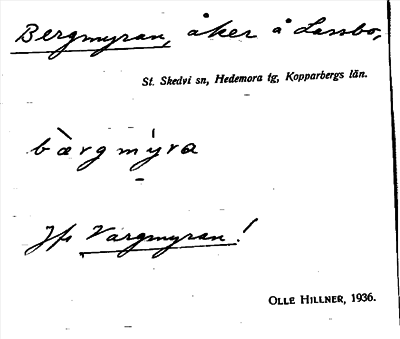 Bergmyran, åker å Lassbo,
St. Skedvi sn, Hedemora tg, Kopparbergs län.
bærgmyra
Jfr Vargmyran!
OLLE HILLNER, 1936.